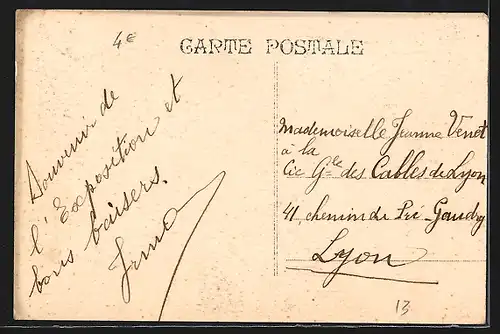 4€
CARTE POSTALE
Souvenir de
l'Exposition et
bons baisers.
Mademoiselle Jeanne Venet
à la
Cie Gle des Cables de Lyon
41, chemin du Pré-Gaudry
Lyon
13